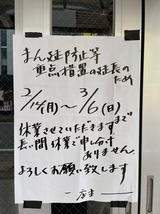 まん延防止等
重点措置の延長の
ため
2/14(月)〜3/6(日)
まで
休業させていただきます
長い間休業で申し分け
ありません
よろしくお願い致します
店主